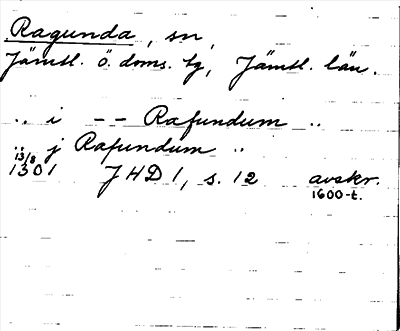 Ragunda, sn,
Jämtl. ö. doms. tg, Jämtl. län.
.. i -- Rafundum ..
.. j Rafundum ..
13/8
1301 JHD 1, s. 12 avskr.
1600-t.